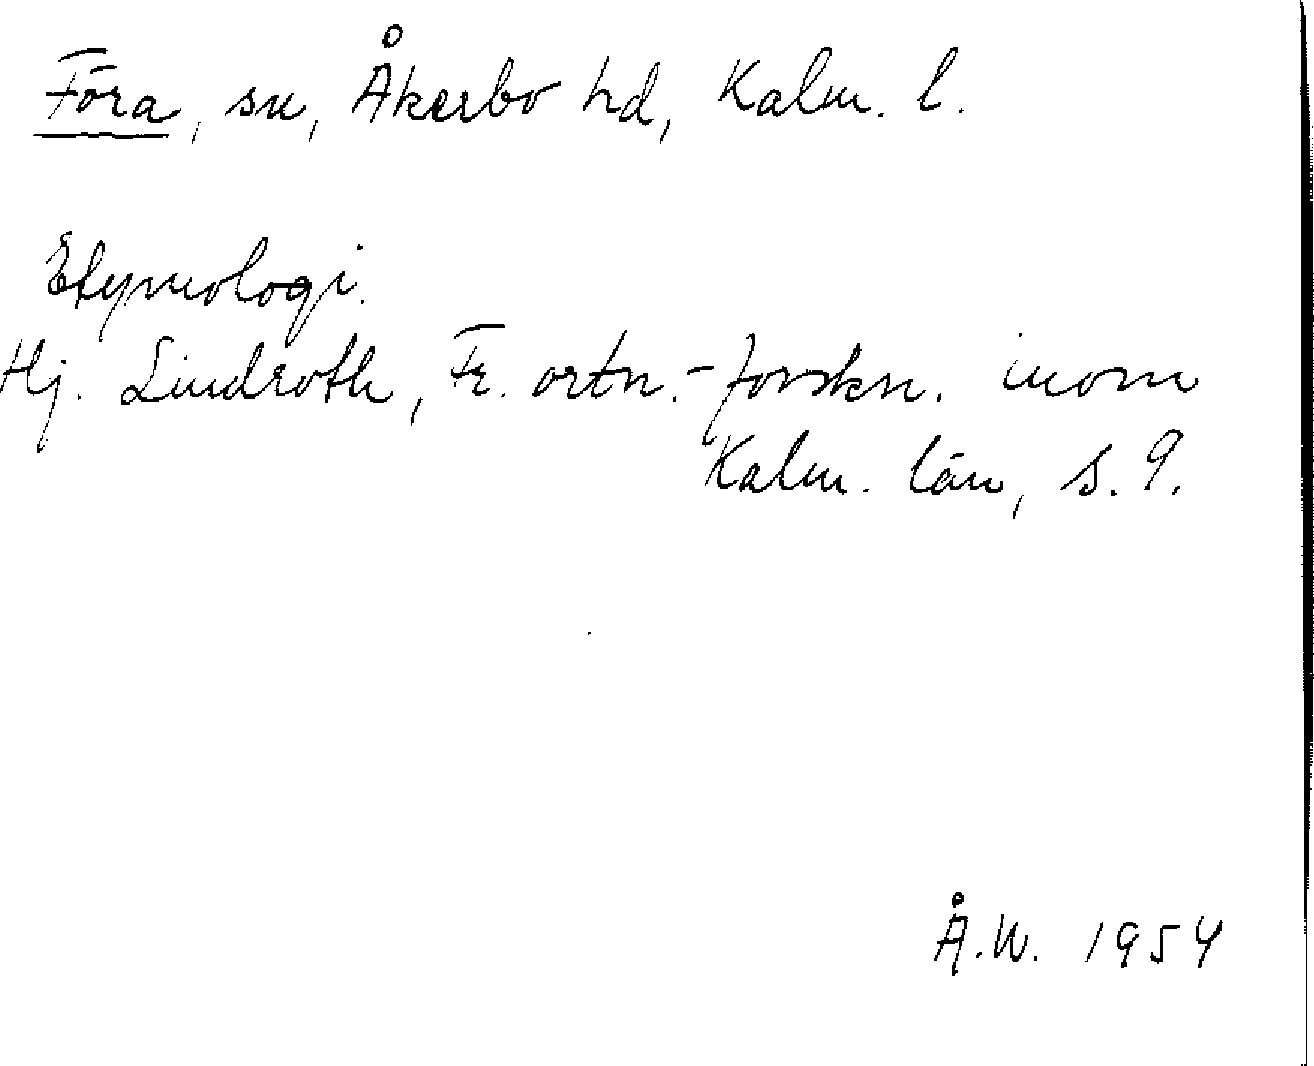 Föra, sn, Åkerbo hd, Kalm. l.
Etymologi.
Hj. Lindroth, Fr. ortn.-forskn. inom
Kalm. län, s. 9.
Å.W. 1954